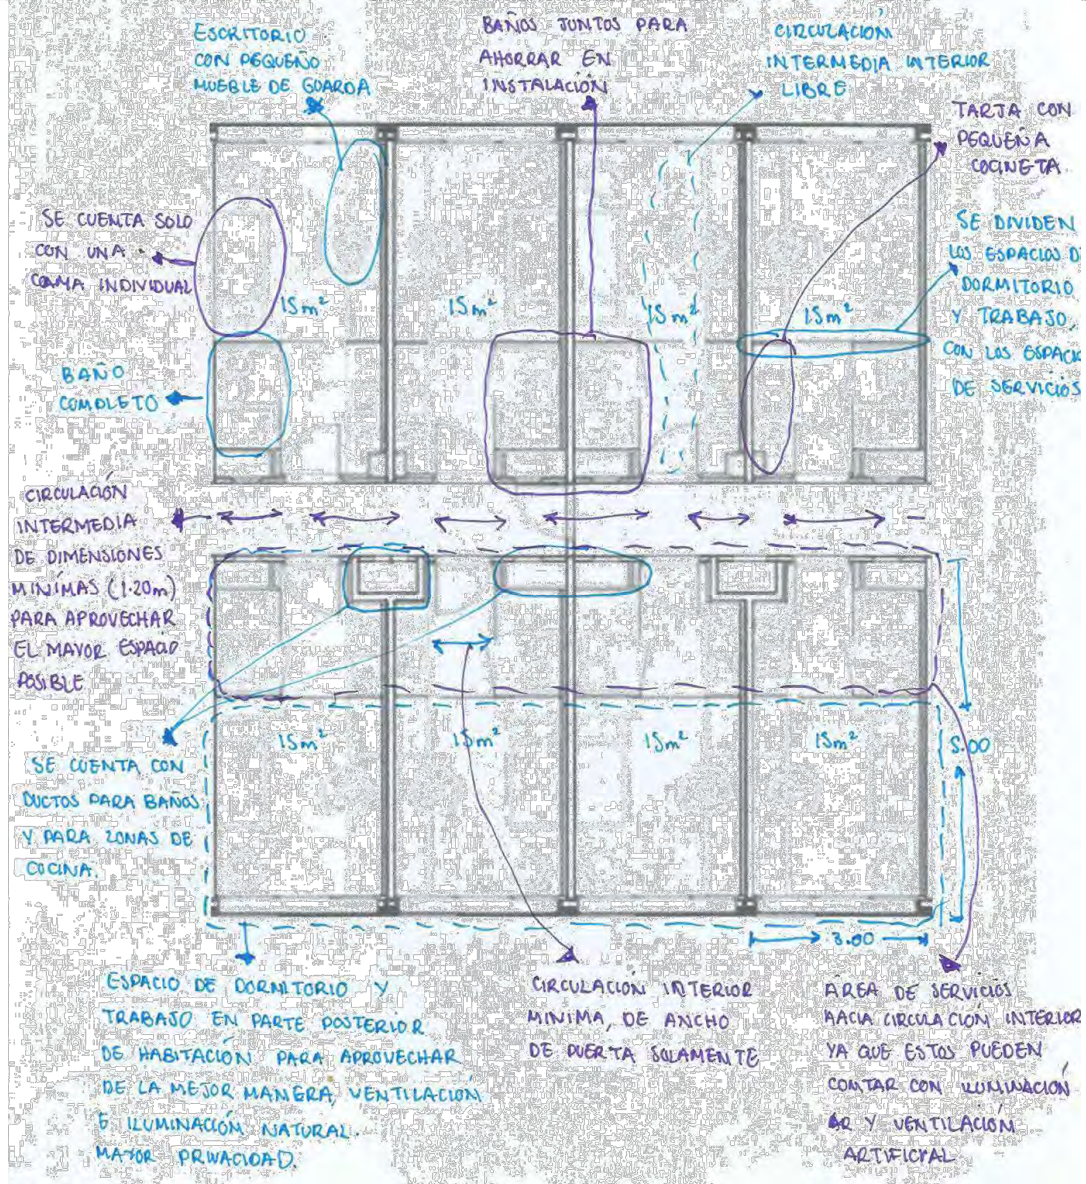 ESCRITORIO
CON PEQUEÑO
MUEBLE DE GUARDA
BAÑOS JUNTOS PARA
AHORRAR EN
INSTALACIÓN
CIRCULACIÓN
INTERMEDIA INTERIOR
LIBRE
TARJA CON
PEQUEÑA
COCINETA.
SE CUENTA SOLO
CON UNA
CAMA INDIVIDUAL
SE DIVIDEN
LOS ESPACIOS DE
DORMITORIO
Y TRABAJO,
CON LOS ESPACIOS
DE SERVICIOS
15m²
15m²
15m²
15m²
BAÑO
COMPLETO
CIRCULACIÓN
INTERMEDIA
DE DIMENSIONES
MINIMAS (1.20m)
PARA APROVECHAR
EL MAYOR ESPACIO
POSIBLE
15m²
15m²
15m²
15m²
5.00
SE CUENTA CON
DUCTOS PARA BAÑOS
Y PARA ZONAS DE
COCINA.
3.00
ESPACIO DE DORMITORIO Y
TRABAJO EN PARTE POSTERIOR
DE HABITACIÓN PARA APROVECHAR
DE LA MEJOR MANERA, VENTILACIÓN
E ILUMINACIÓN NATURAL.
MAYOR PRIVACIDAD.
CIRCULACIÓN INTERIOR
MINIMA, DE ANCHO
DE PUERTA SOLAMENTE
ÁREA DE SERVICIOS
HACIA CIRCULACIÓN INTERIOR
YA QUE ESTOS PUEDEN
CONTAR CON ILUMINACIÓN
Y VENTILACIÓN
ARTIFICIAL